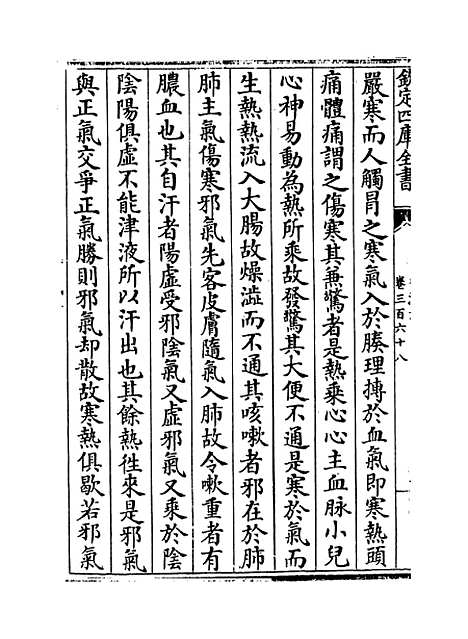 欽定四庫全書
卷三百六十八
嚴寒而人觸冐之寒氣入於腠理搏於血氣即寒熱頭
痛體痛謂之傷寒其兼驚者是熱乘心心主血脉小兒
心神易動為熱所乘故發驚其大便不通是寒於氣而
生熱熱流入大腸故燥澁而不通其咳嗽者邪在於肺
肺主氣傷寒邪氣先客皮膚隨氣入肺故令嗽重者有
膿血也其自汗者陽虛受邪陰氣又虛邪氣又乘於陰
陰陽俱虛不能津液所以汗出也其餘熱徃來是邪氣
與正氣交爭正氣勝則邪氣却散故寒熱俱歇若邪氣